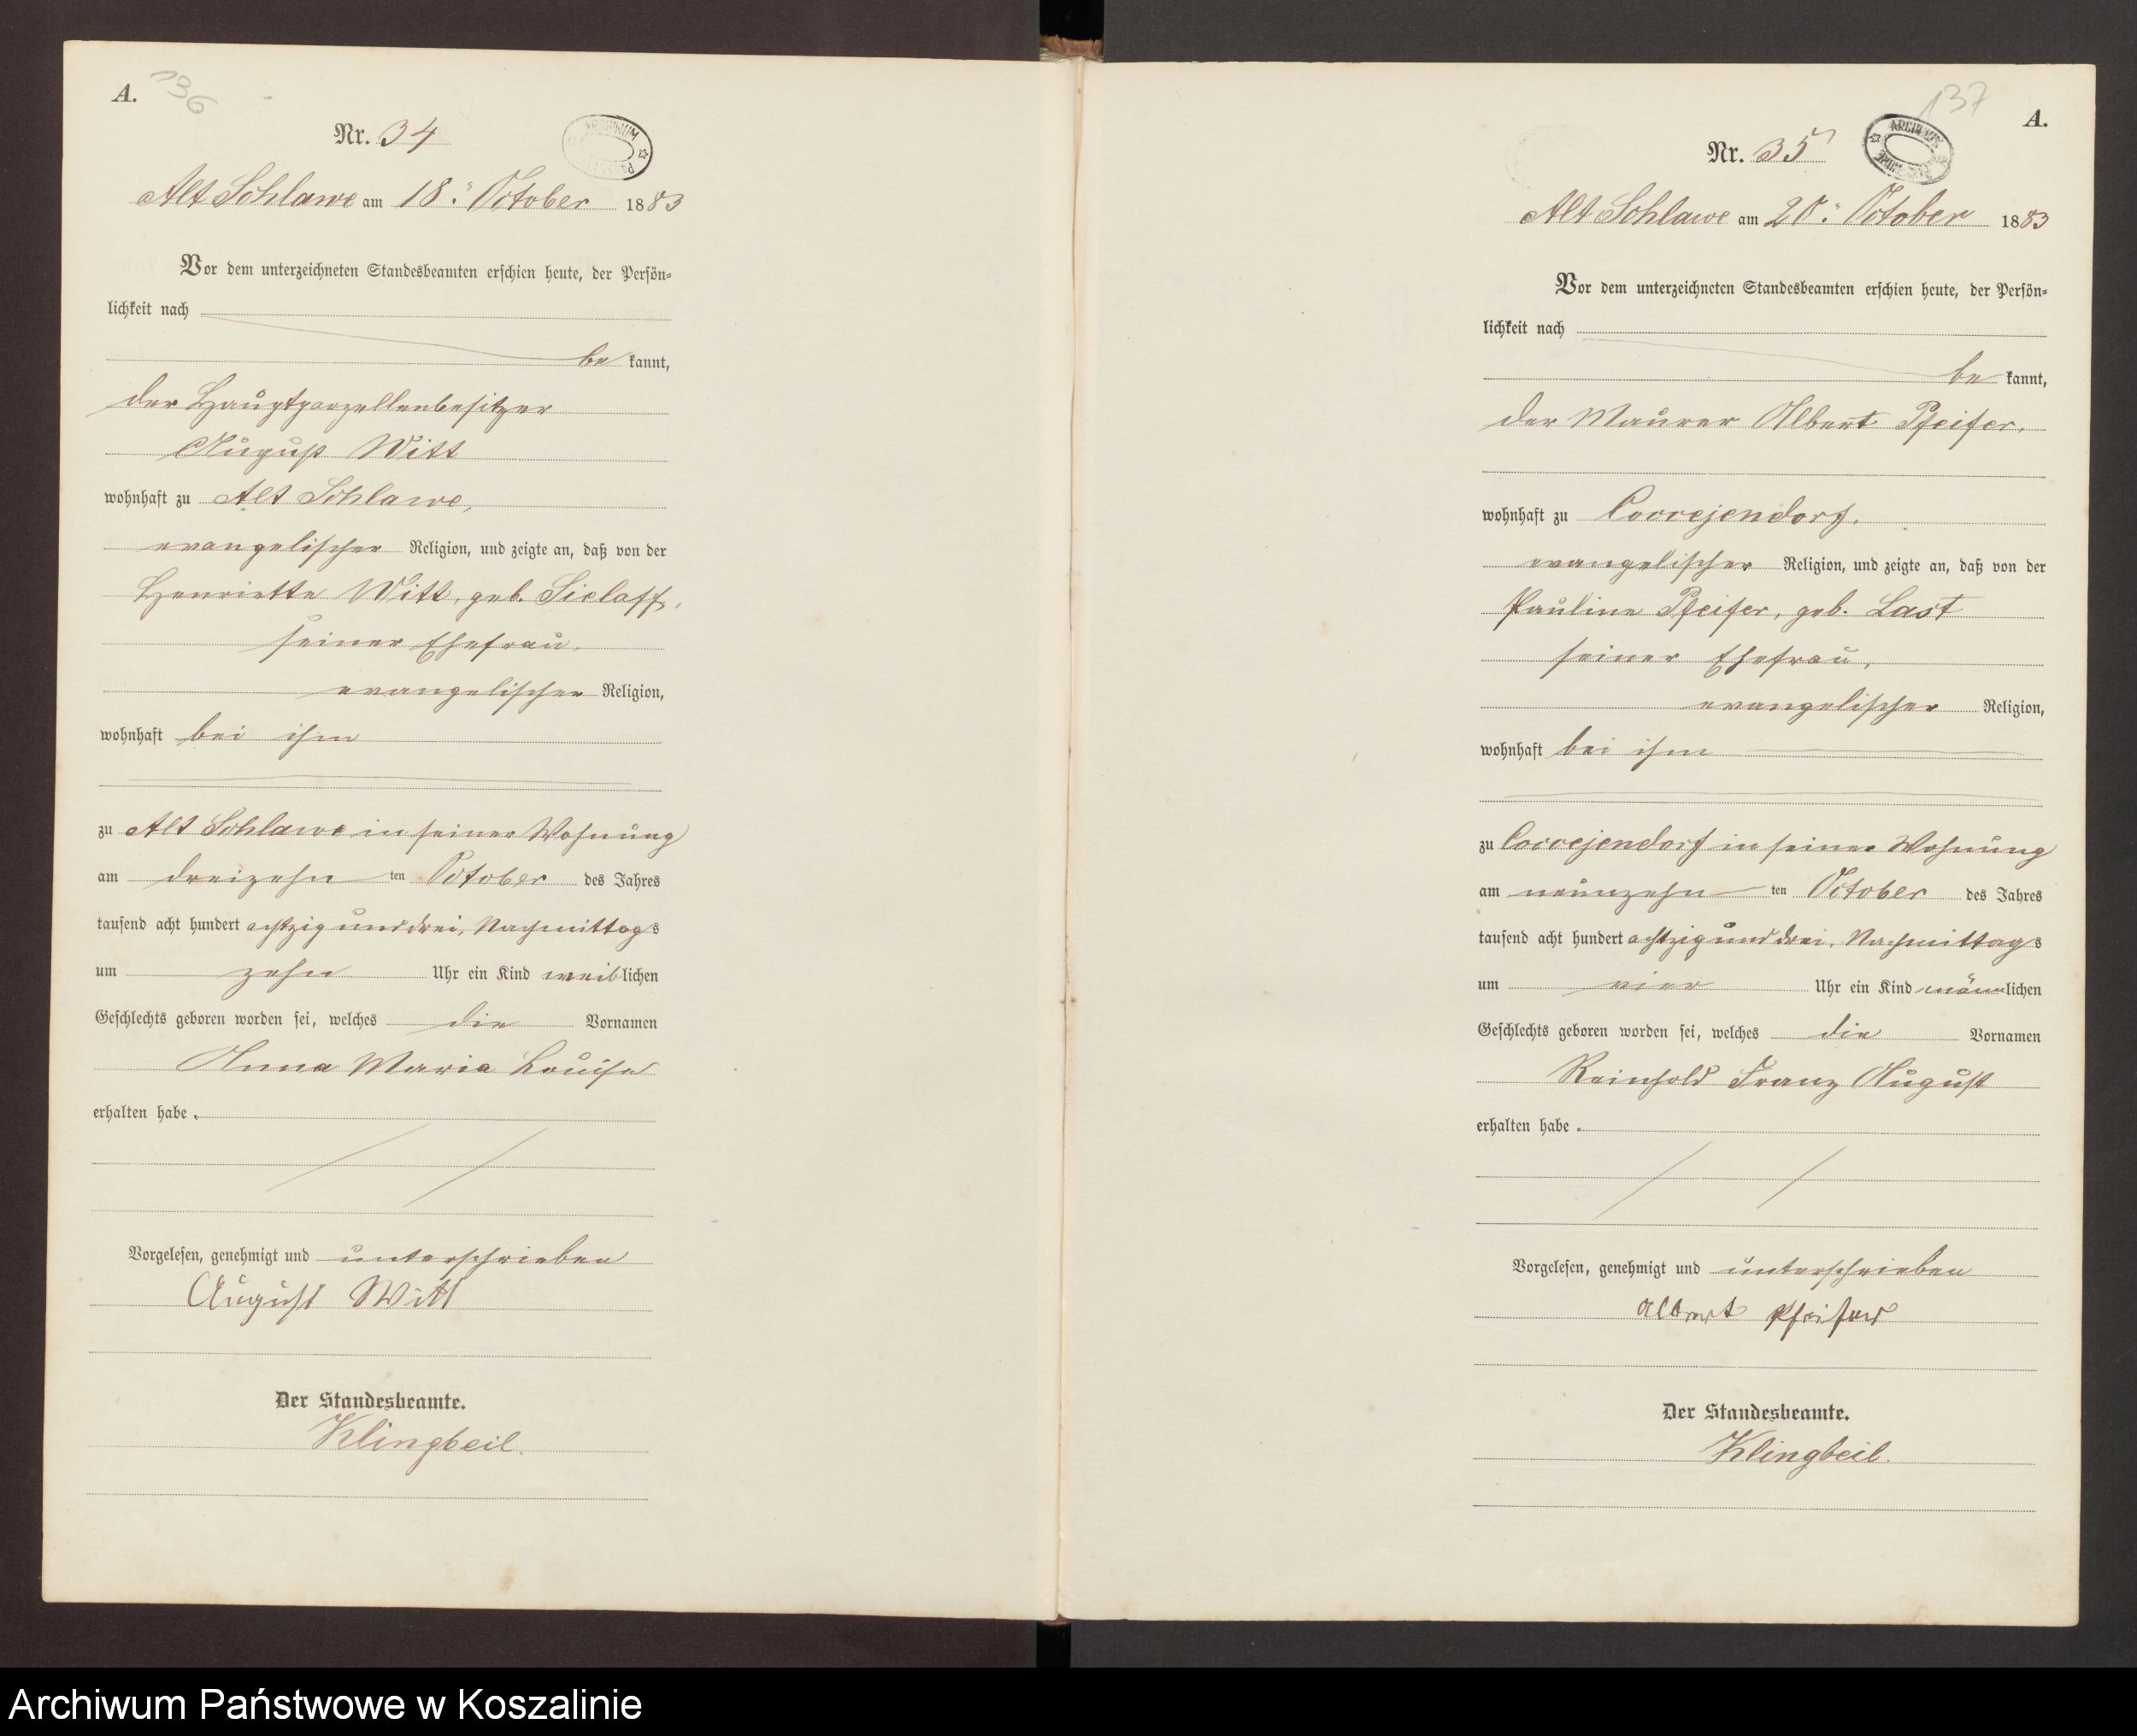 A.
136
Nr. 34
ARCHIWUM
Alt Schlawe am 18. October 1883
Vor dem unterzeichneten Standesbeamten erschien heute, der Persön=
lichkeit nach
be kannt,
der Hauptparzellenbesitzer
August Witt
wohnhaft zu Alt Schlawe,
evangelischer Religion, und zeigte an, daß von der
Henriette Witt, geb. Sielaff,
seiner Ehefrau,
evangelischer Religion,
wohnhaft bei ihm
zu Alt Schlawe in seiner Wohnung
am dreizehn ten October des Jahres
tausend acht hundert achtzig und drei, Nachmittags
um zehn Uhr ein Kind weiblichen
Geschlechts geboren worden sei, welches die Vornamen
Anna Maria Louise
erhalten habe.
Vorgelesen, genehmigt und unterschrieben
August Witt
Der Standesbeamte.
Klingbeil.
137
A.
Nr. 35
ARCHIWUM
Alt Schlawe am 20. October 1883
Vor dem unterzeichneten Standesbeamten erschien heute, der Persön=
lichkeit nach
be kannt,
der Maurer Albert Pfeifer,
wohnhaft zu Coccejendorf,
evangelischer Religion, und zeigte an, daß von der
Pauline Pfeifer, geb. Last
seiner Ehefrau,
evangelischer Religion,
wohnhaft bei ihm
zu Coccejendorf in seiner Wohnung
am neunzehn ten October des Jahres
tausend acht hundert achtzig und drei, Nachmittags
um vier Uhr ein Kind männlichen
Geschlechts geboren worden sei, welches die Vornamen
Reinhold Franz August
erhalten habe.
Vorgelesen, genehmigt und unterschrieben
Albert Pfeifer
Der Standesbeamte.
Klingbeil.
Archiwum Państwowe w Koszalinie